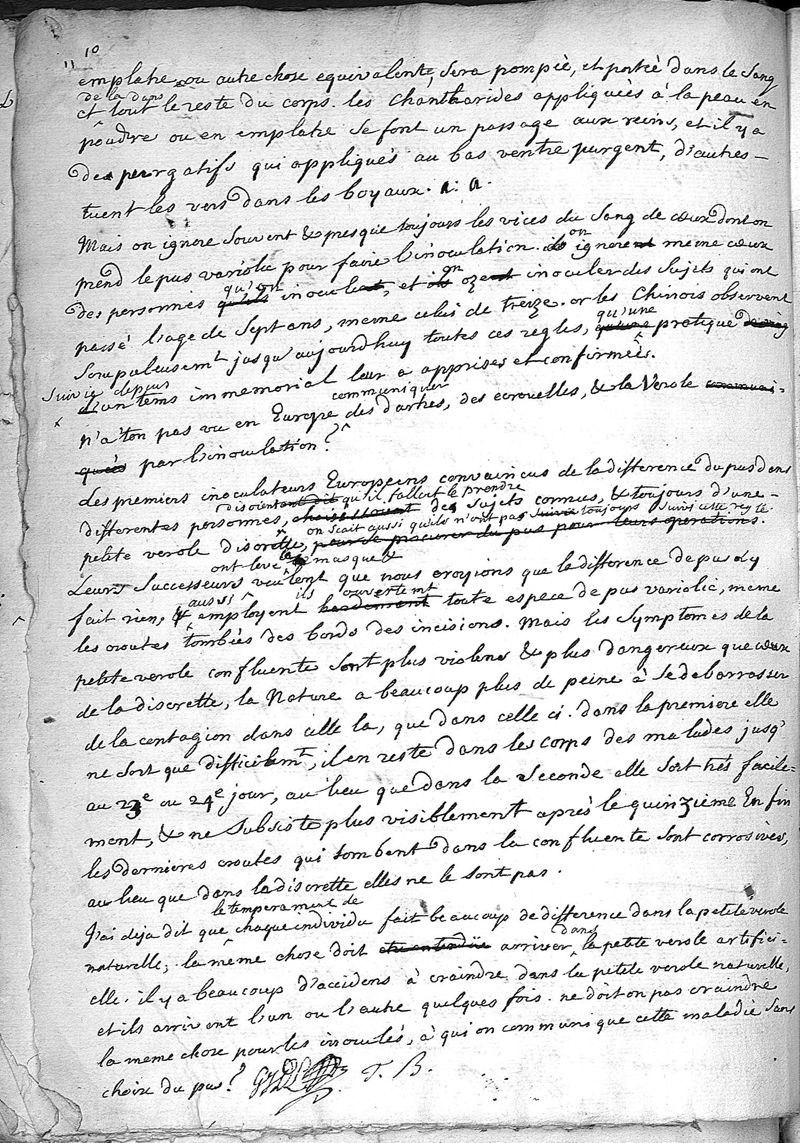 10
11
emplatre, ou autre chose equivalente, sera pompèe, et portèe dans le sang
de la dans
et tout le reste du corps. les Chantharides appliquèes à la peau en
poudre ou en emplatre se font un passage aux reins, et il y a
des purgatifs qui appliquès au bas ventre purgent, d'autres –
tuent les vers dans les boyaux. a: a.
Mais on ignore souvent & presque toujours les vices du Sang de cœux dont on
prend le pus variolic pour faire l'inoculation. on ignore même cœux
des personnes qu'on inocule, et on oze inoculer des sujets qui ont
passé l'age de Sept ans, meme celui de treize. or les Chinois observent
Scrupuleusemt jusqu'aujourdhuy toutes ces regles, qu'une pratique
suivie depuis
d'un tems immemorial leur a apprises et confirmèes.
communiquer
n'a'ton pas vu en Europe des dartres, des ecrouelles, & la Verole
par l'inoculation?
Les premiers inoculateurs Europeens convaincus de la difference du pus dans
disoient qu'il falloit le prendre
differentes personnes, des sujets connus, & toujours d'une –
on scait aussi qu'ils n'ont pas toujours suivi cette regle
petite verole discrette, pour se procurer du pus pour leurs operations.
ont levé le masque &
Leurs Successeurs veulent que nous croyions que la difference de pus n'y
aussi ils ouvertemt
fait rien, & employent hardement toute espece de pus variolic, meme
les croutes tombèes des bords des incisions. Mais les Symptomes de la
petite verole confluente sont plus violens & plus dangereux que cœux
de la discrette, la Nature a beaucoup plus de peine à se debarrasser
de la contagion dans celle la, que dans celle ci. dans la premiere elle
ne sort que difficilemt, il en reste dans les corps des malades jusq'
au 23e ou 24e jour, au lieu que dans la seconde elle sort très facile-
ment, & ne subsiste plus visiblement après le quinzième Enfin
les dernieres croutes qui tombent dans la confluente sont corrosives,
au lieu que dans la discrette elles ne le sont pas.
le temperament de
J'ai deja dit que chaque individu fait beaucoup de difference dans la petite verole
dans
naturelle; la même chose doit arriver la petite verole artifici-
elle. il y a beaucoup d'accidens à craindre dans la petite verole naturelle,
et ils arrivent l'un ou l'autre quelques fois. ne doit on pas craindre
la meme chose pour les inoculés, à qui on communique cette maladie sans
choix du pus? T. B.